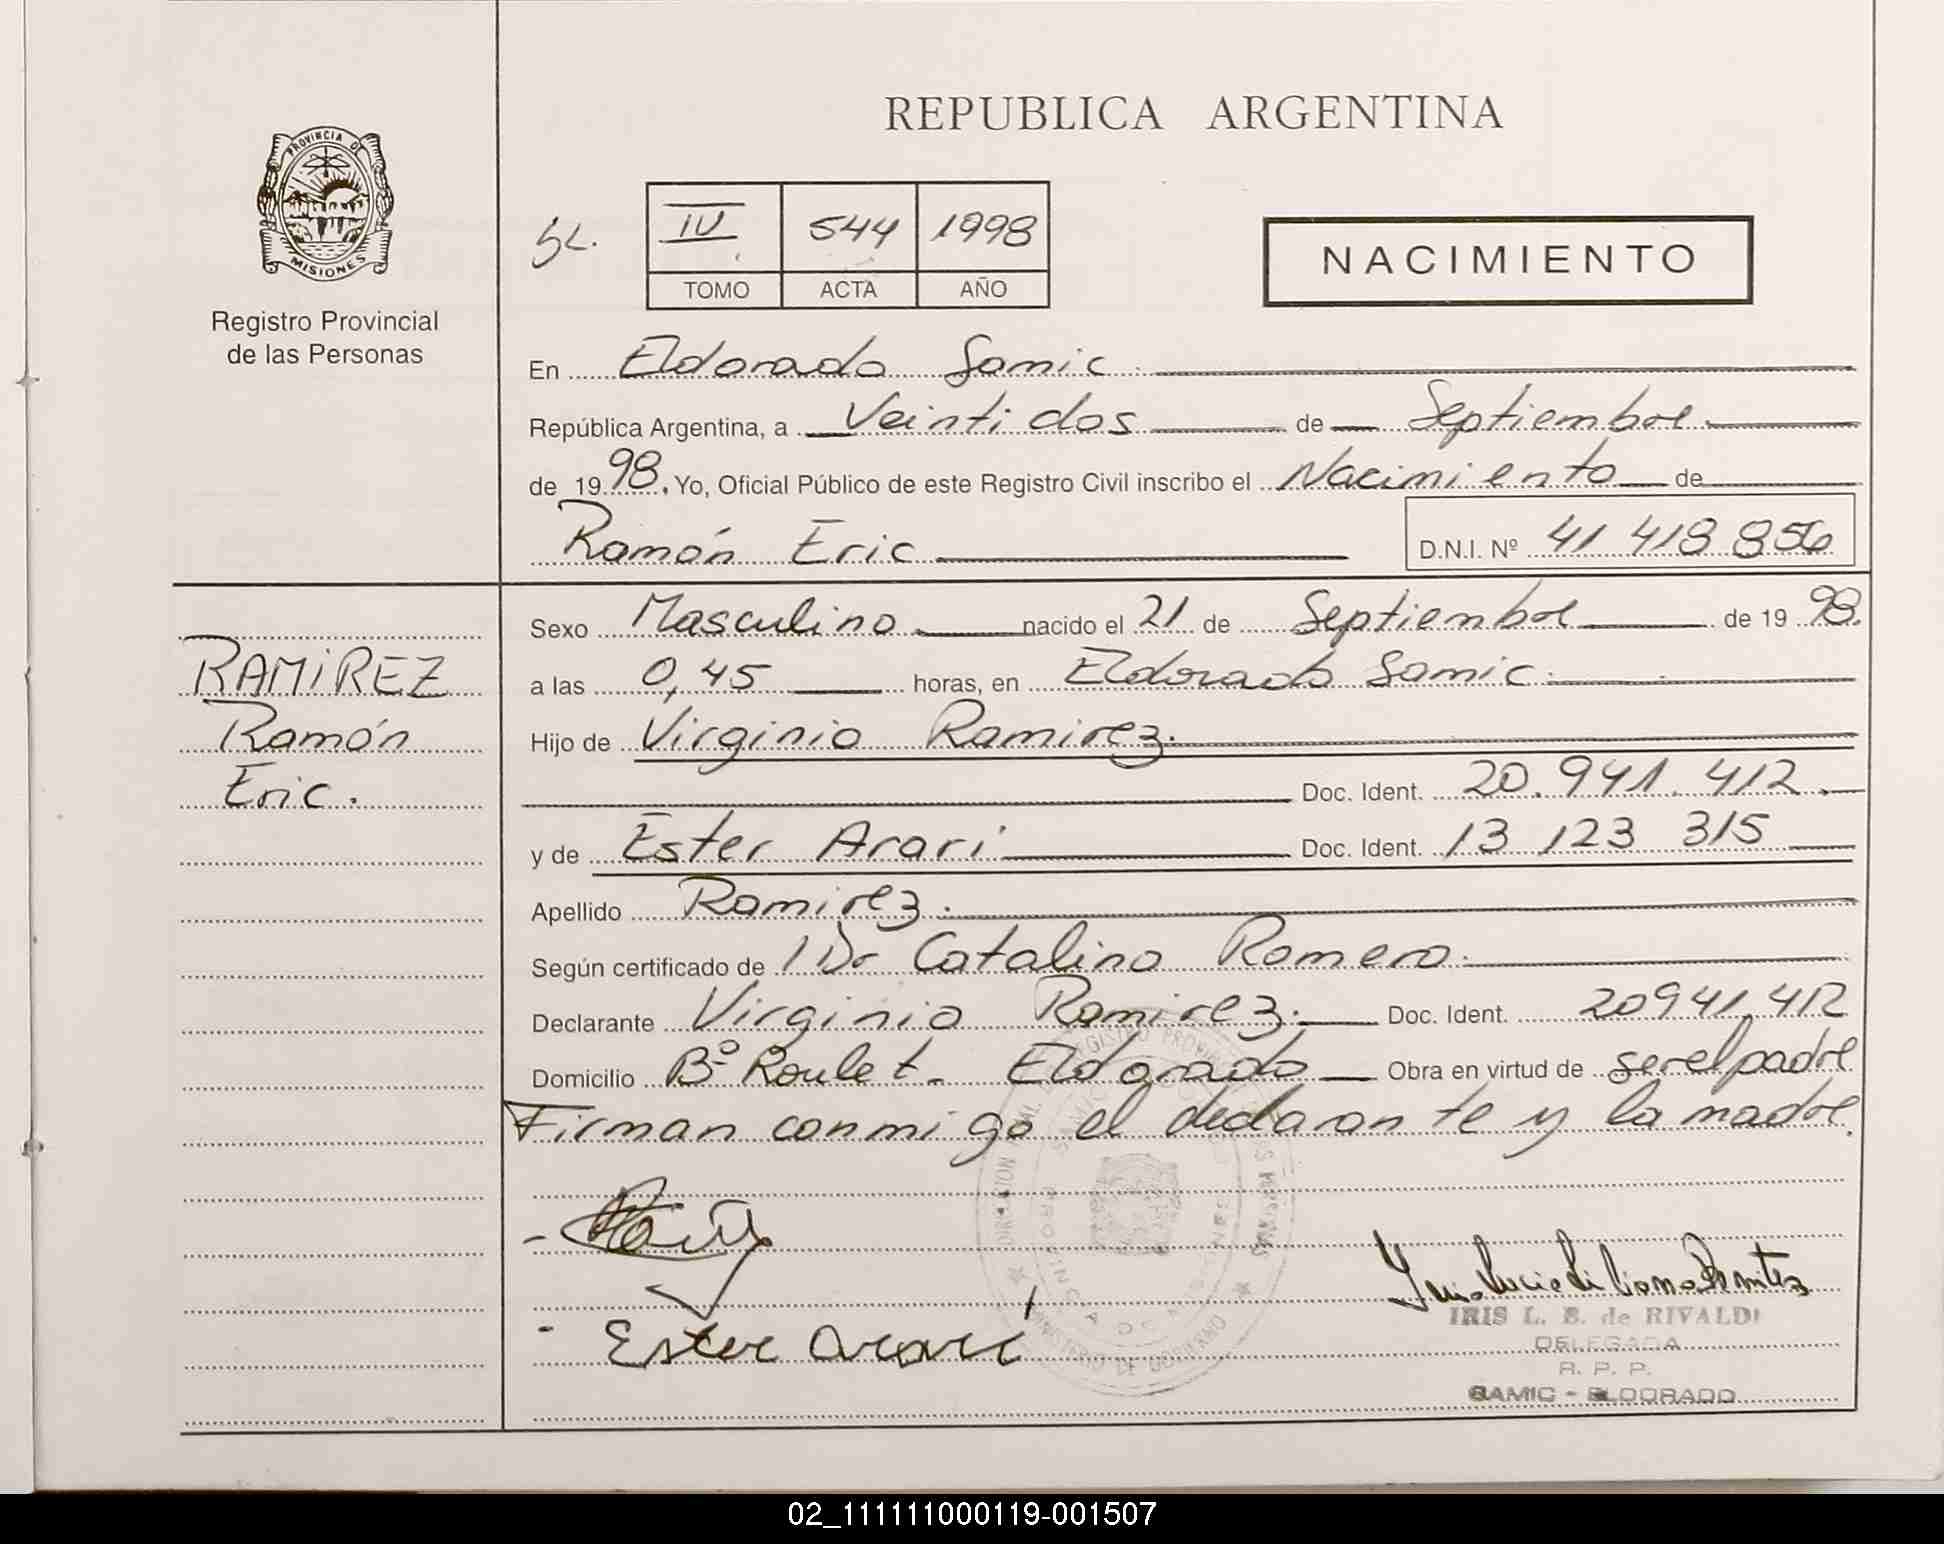 REPUBLICA ARGENTINA
PROVINCIA DE
MISIONES
Registro Provincial
de las Personas
IV 544 1998
TOMO ACTA AÑO
NACIMIENTO
En Eldorado Samic.
República Argentina, a Veintidos de Septiembre
de 1998, Yo, Oficial Público de este Registro Civil inscribo el Nacimiento de
Ramón Eric D.N.I. Nº 41 418 856
RAMIREZ
Ramón
Eric.
Sexo Masculino nacido el 21 de Septiembre de 1998.
a las 0,45 horas, en Eldorado Samic.
Hijo de Virginio Ramirez.
Doc. Ident. 20.941.412.
y de Ester Arari Doc. Ident. 13 123 315
Apellido Ramirez.
Según certificado de Dr Catalino Romero.
Declarante Virginio Ramirez. Doc. Ident. 20941,412
Domicilio Bº Roulet. Eldorado Obra en virtud de ser el padre
Firman conmigo el declarante y la madre.
Ester Arari
IRIS L. B. de RIVALDI
DELEGADA
R. P. P.
SAMIC - ELDORADO
02_111111000119-001507